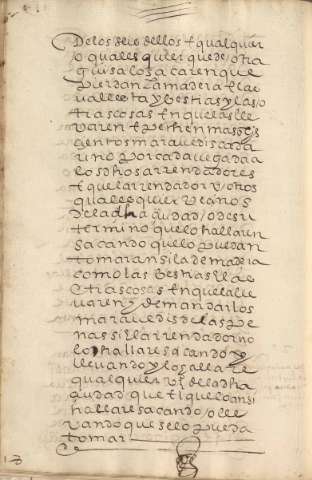 De los seis dellos E qualquier
o quales quier que de otra
guisa los a caren que
pierdan la madera E la
vallesta y bestias y las o
tras cosas En que las lle
varen E pechen mas seis
çientos maravedis cada
uno por cada vegada a
los dhos arrendadores
E que larrendador V otros
quales quier Vezinos
de la dha çiudad / o de su
termino que lo hallaren
sacando que lo puedan
tomar ansi la madera
como las bestias E las
otras cosas En que la lle
varen y demandar los
maravedis de las pe
nas si larrendador no
lo hallare sacando y
llevando y los alla re
qualquier de la dha
çiudad que E que lo ansi
hallare sacando / o lle
vando que se lo pueda
tomar